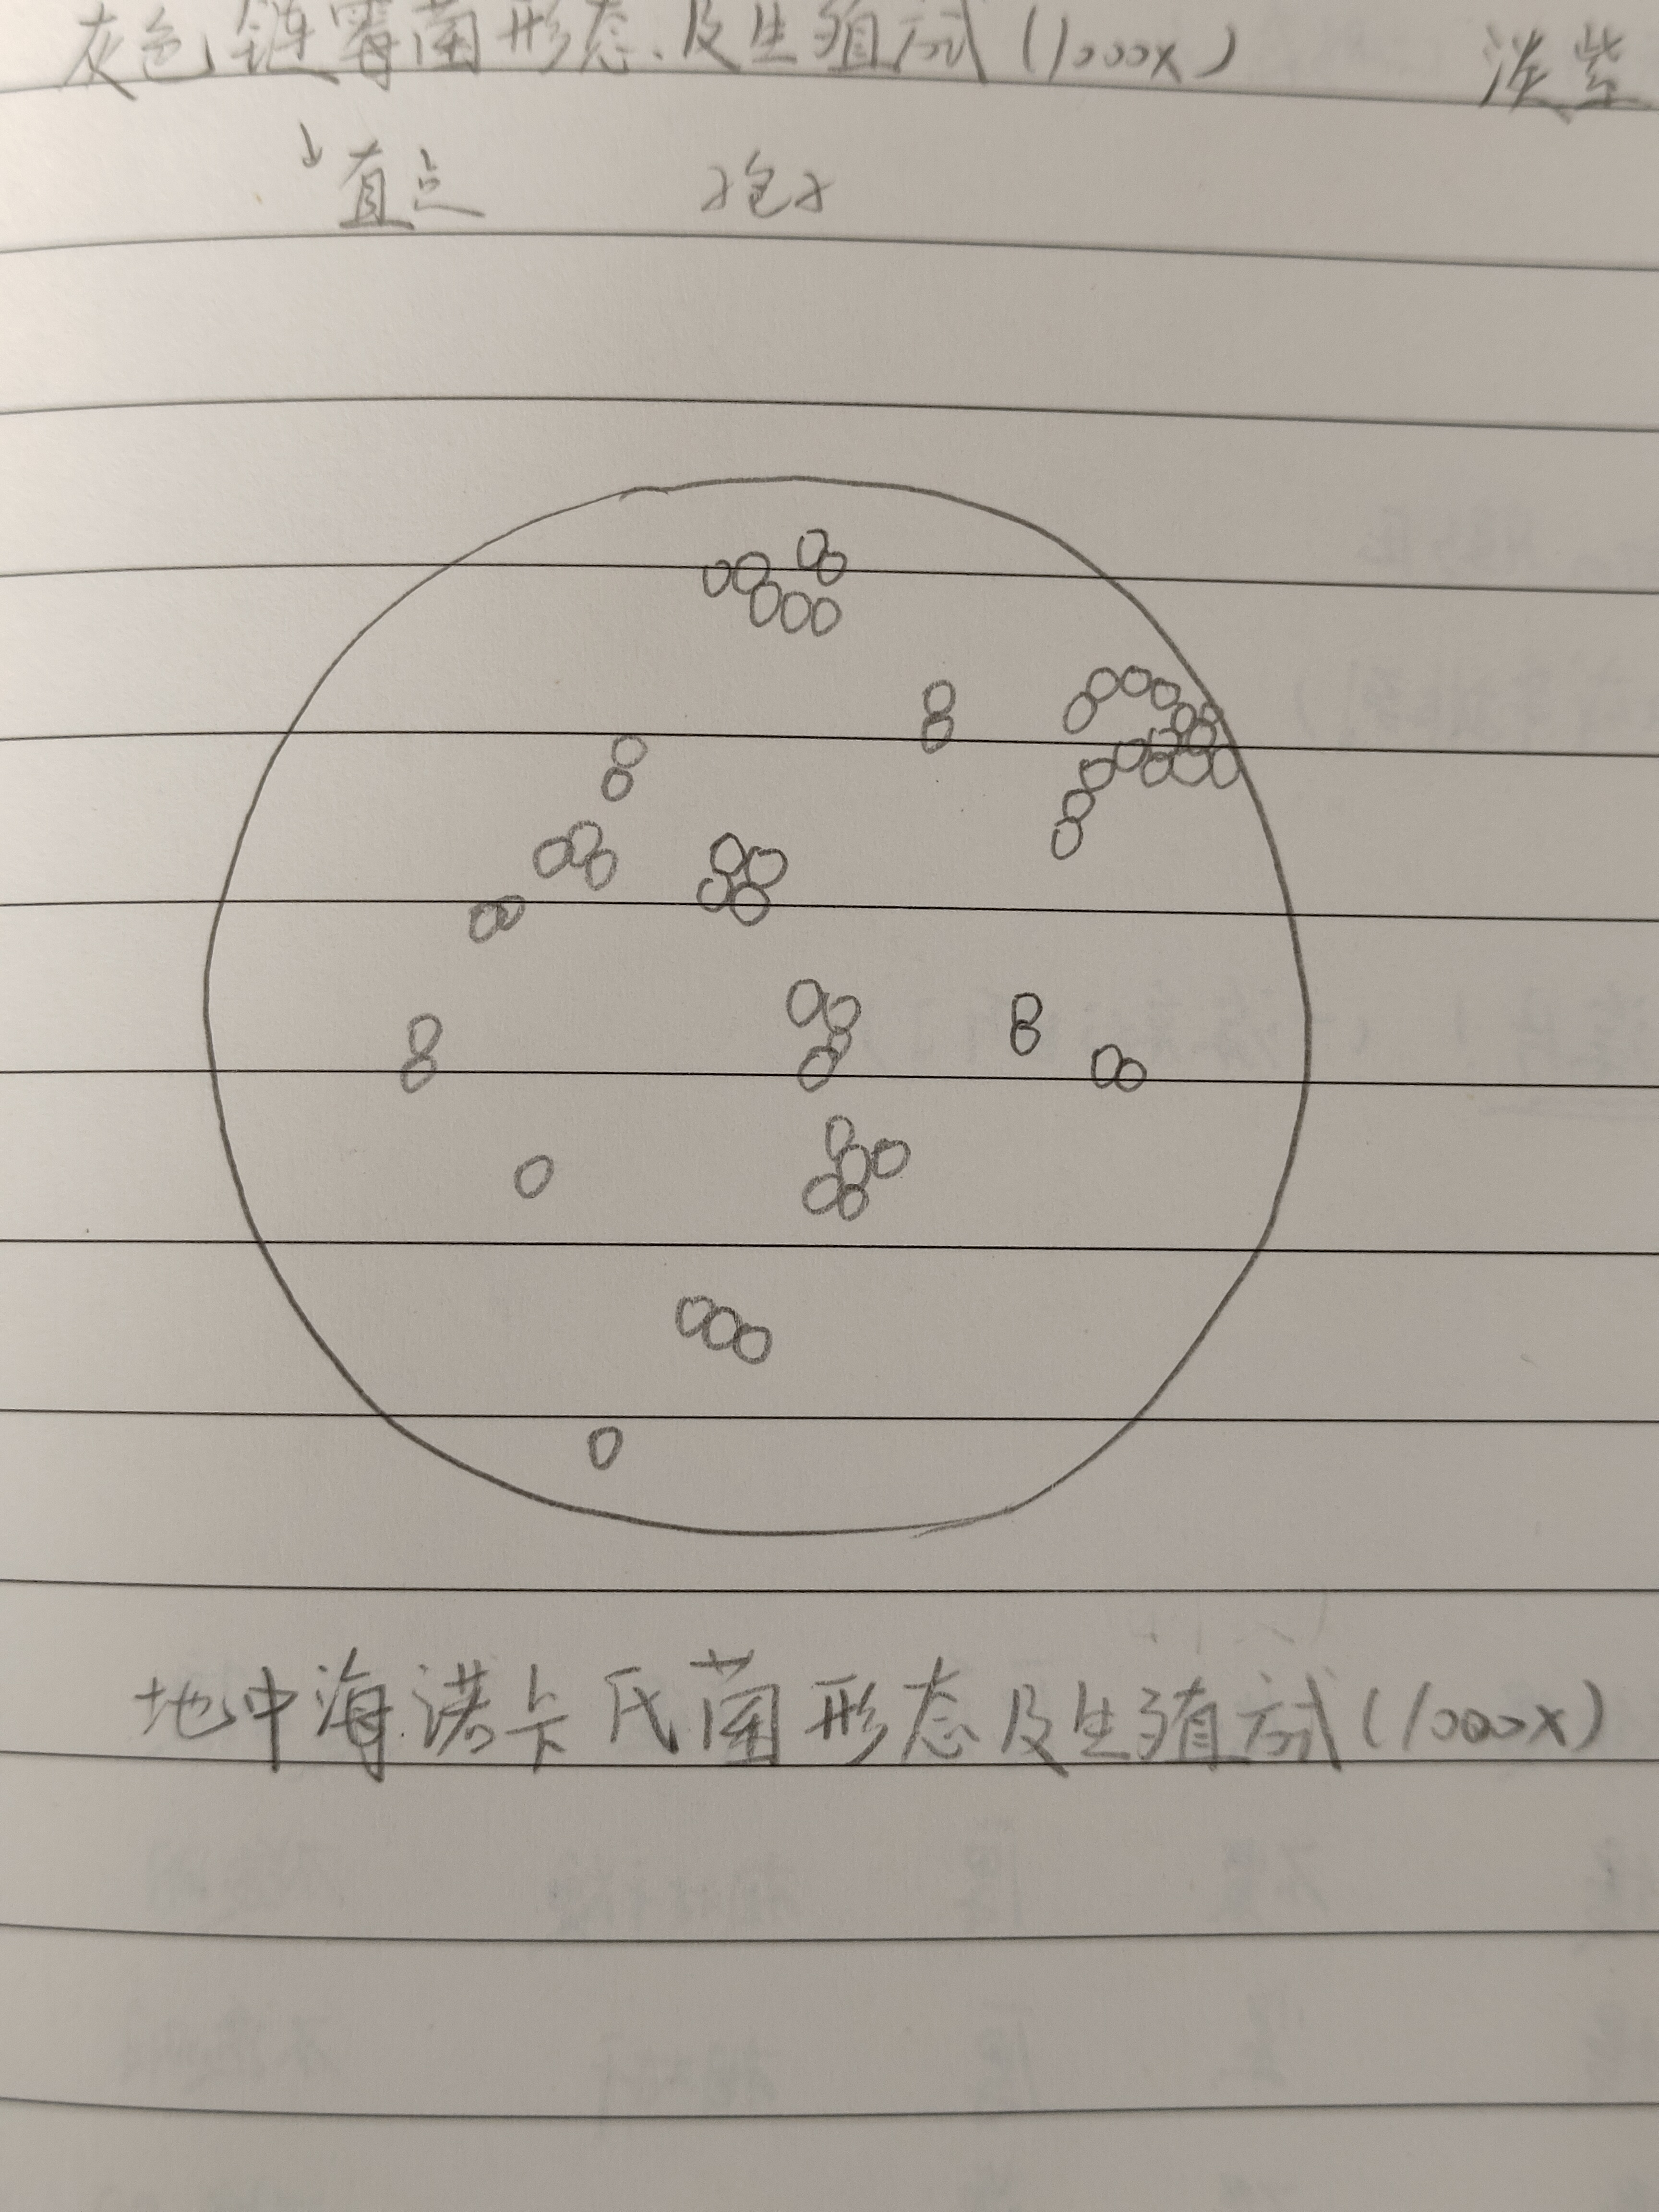 灰色链霉菌形态及生殖方式(1000x) 淡紫
↓直点 孢子
地中海诺卡氏菌形态及生殖方式(1000x)